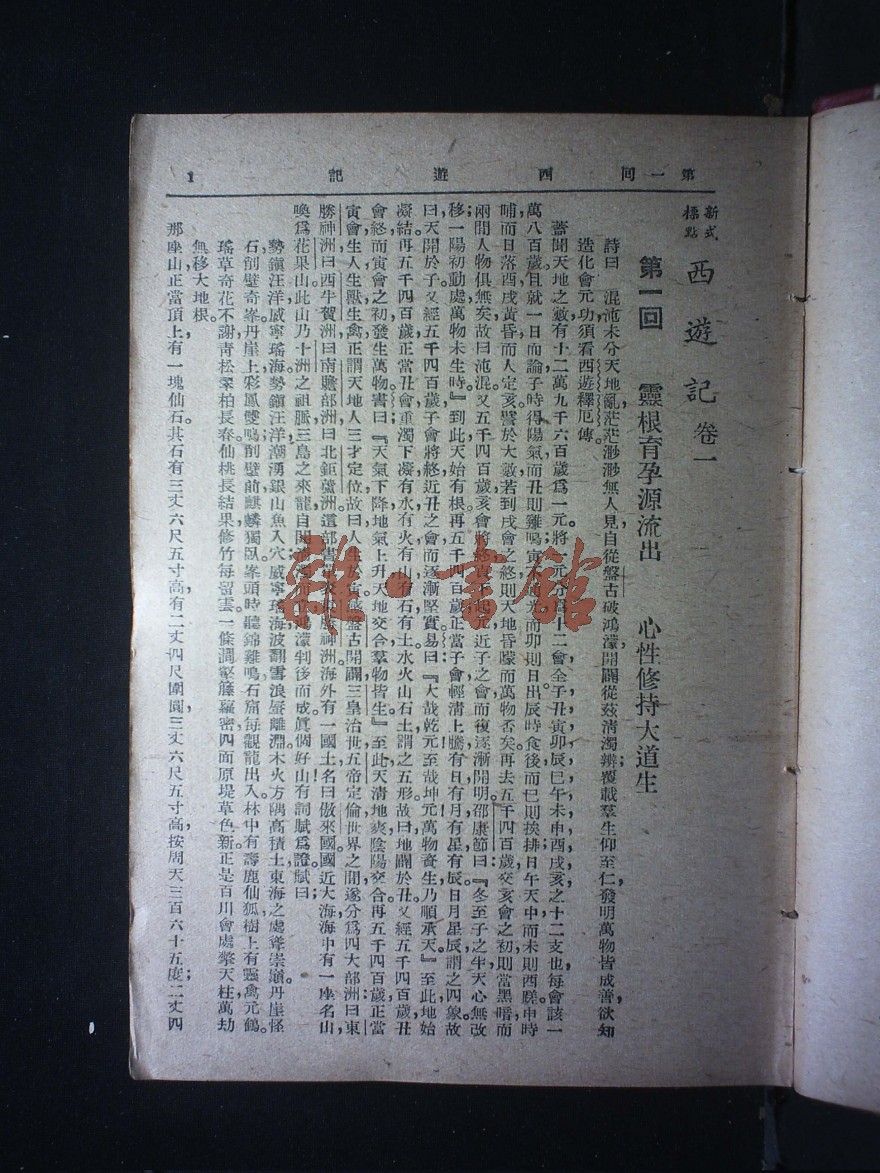 第一回 西遊記 1
新式標點 西遊記 卷一
第一回 靈根育孕源流出 心性修持大道生
詩曰 混沌未分天地亂，茫茫渺渺無人見，自從盤古破鴻濛，開闢從茲清濁辨；覆載羣生仰至仁，發明萬物皆成善，欲知
造化會元功，須看西遊釋厄傳。
蓋聞天地之數，有十二萬九千六百歲爲一元。將一元分爲十二會，全子丑寅卯辰巳午未申酉戌亥之十二支也，每會該一
萬八百歲，且就一日而論，子時得陽氣而丑則雞鳴，寅不通光而卯則日出，辰時食後而巳則挨排，日午天中，而未則西蹉，申時
晡而日落酉，戌黃昏而人定亥，譬於大數，若到戌會之終，則天地昏曚而萬物否矣。再去五千四百歲，交亥會之初，則當黑暗，而
兩間人物俱無矣，故曰沌混，又五千四百歲，亥會將終，貞下起元，近子之會，而復逐漸開明。邵康節曰：『冬至子之半，天心無改
移，一陽初動處，萬物未生時』到此天始有根。再五千四百歲，正當子會，輕清上騰，有日有月有星有辰，日月星辰，謂之四象，故
曰天開於子，又經五千四百歲，子會將終，近丑之會，而逐漸堅實，易曰：『大哉乾元，至哉坤元，萬物資生，乃順承天。』至此地始
凝結，再五千四百歲，正當丑會，重濁下凝，有水有火有山有石有土，水火山石土，謂之五形，故曰地闢於丑，又經五千四百歲，丑
會終而寅會之初，發生萬物，書曰『天氣下降，地氣上升，天地交合，羣物皆生』至此天清地爽，陰陽交合。再五千四百歲，正當
寅會，生人生獸生禽，正謂天地人三才定位，故曰人生於寅，感盤古開闢，三皇治世，五帝定倫，世界之間，遂分爲四大部洲：曰東
勝神洲，曰西牛賀洲，曰南贍部洲，曰北鉅蘆洲，這部書單表東勝神洲，海外有一國土，名曰傲來國，國近大海，海中有一座名山，
喚爲花果山，此山乃十洲之祖脈，三島之來龍，自開清濁而立，鴻濛判後而成，眞個好山！有詞賦爲證，賦曰：
勢鎭汪洋，威寧瑤海。勢鎭汪洋，潮湧銀山魚入穴；威寧瑤海，波翻雪浪蜃離淵。木火方隅高積土，東海之處聳崇巓。丹崖怪
石，削壁奇峯。丹崖上，彩鳳雙鳴；削壁前，麒麟獨臥。峯頭時聽錦雞鳴，石窟每觀龍出入。林中有壽鹿仙狐，樹上有靈禽元鶴。
瑤草奇花不謝，靑松翠柏長春。仙桃長結果，修竹每留雲。一條澗壑籐蘿密，四面原堤草色新，正是百川會處擎天柱，萬劫
無移大地根。
那座山正當頂上，有一塊仙石。其石有三丈六尺五寸高，有二丈四尺圍圓，三丈六尺五寸高，按周天三百六十五度；二丈四
雜·書館